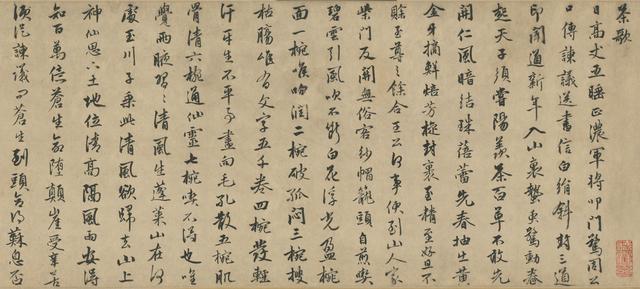 茶歌
日高丈五睡正濃軍將叩門驚周公
口傳諫議送書信白絹斜封三道
印聞道新年入山裏蟄虫驚動春
起天子須嘗陽羨茶百草不敢先
開仁風暗結珠蓓蕾先春抽出黃
金牙摘鮮焙芳旋封裹至精至好且不
賒至尊之餘合王公何事便到山人家
柴門反關無俗客紗帽籠頭自煎喫
碧雲引風吹不斷白花浮光盈椀
面一椀喉吻潤二椀破孤悶三椀搜
枯腸唯有文字五千卷四椀發輕
汗平生不平事盡向毛孔散五椀肌
骨清六椀通仙靈七椀喫不得也唯
覺兩腋習習清風生蓬萊山在何
處玉川子乘此清風欲歸去山上
神仙思下土地位清高隔風雨安得
知百萬億蒼生命墮顛崖受辛苦
須從諫議問蒼生到頭合得蘇息否